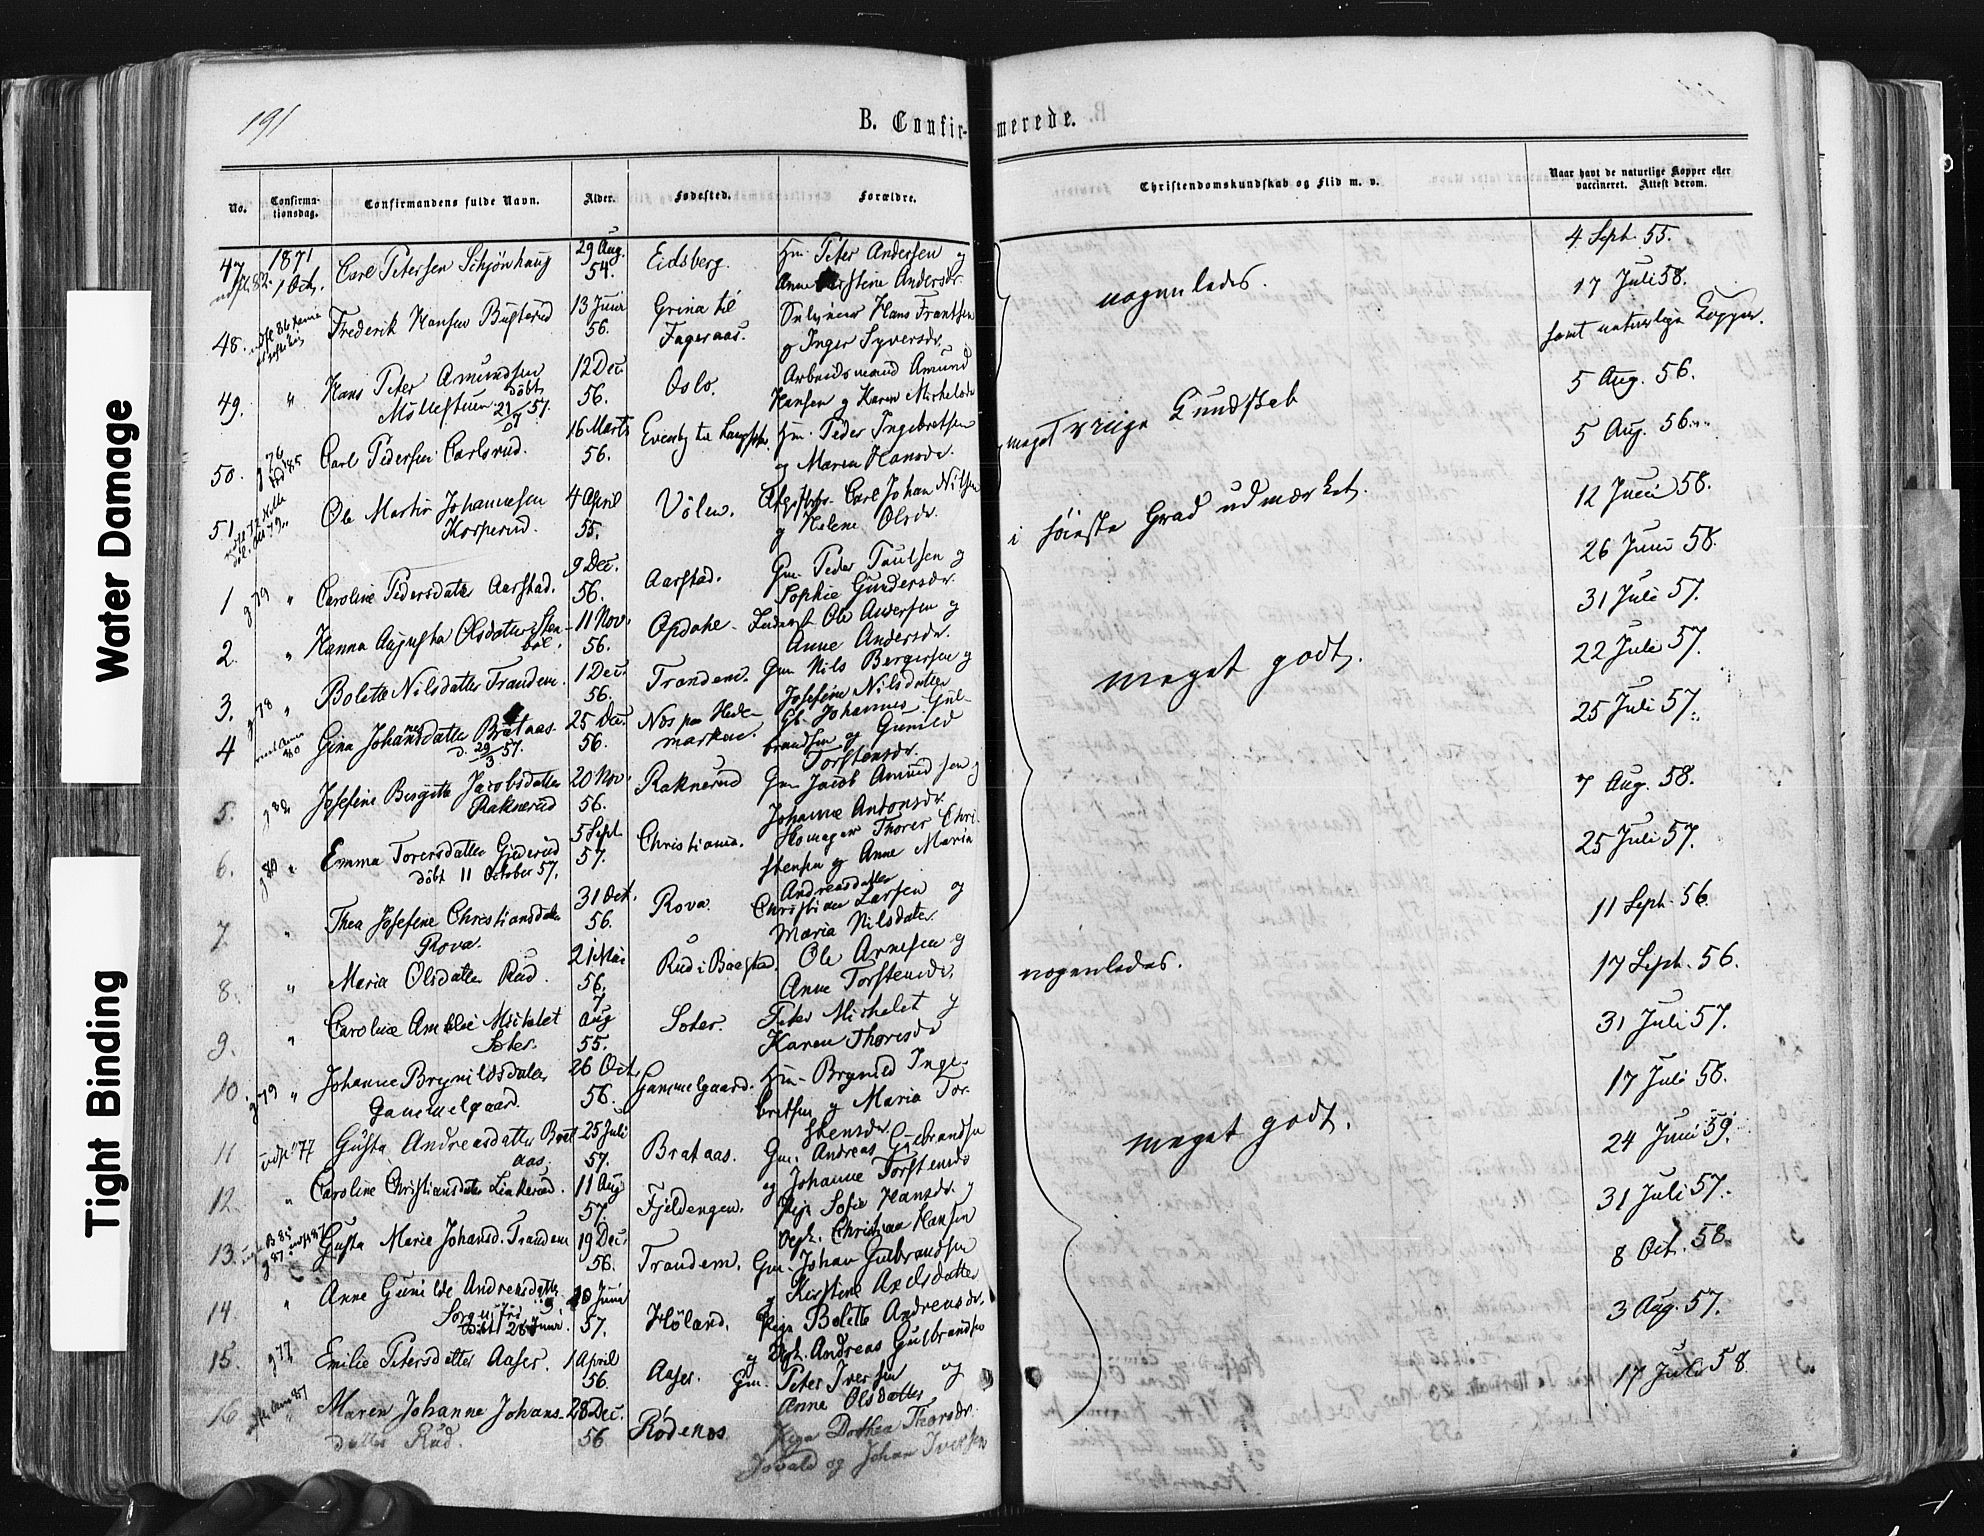 191
B. Confirmerede.
No.
Confirmationsdag.
Confirmandens fulde Navn.
Alder.
Fødested.
Forældre.
Christendomskundskab og Flid m. v.
Naar havt de naturlige Kopper eller
vaccineret. Attest derom.
47 1871 1 Oct. Carl Petersen Schjønhaug 29 Aug. 54. Eidsberg. Hm. Peter Andersen og
Andersdr. 4 Sept. 55.
48. Frederik Hansen Busterud 13 Juni 56. Grina til Fageraas. Hans Frantsen
og Inger Syversdr. nogenledes. 17 Juli 58.
samt naturlige Kopper.
49. " Hans Peter Amundsen 12 Dec 56. Oslo. Arbeidsmand Amund
Møllestuen døbt 57. Hansen og Karen Michelsdr 5 Aug. 56.
50. Carl Pedersen Carlsrud. 16 Marts 56. Hm. Peder Ingebretsen
og Maren Hansdr. meget Kundskab 5 Aug. 56.
51 Ole Martin Johannesen 4 April 55. Vølen. Carl Johan Nilsen
Korperud. og Helene Olsdr. i høieste Grad udmærket. 12 Juni 58.
1 g 79 " Caroline Pedersdatter Aarstad. 9 Dec. 56. Aarstad. Gm. Peder Paulsen og
Sophie Gundersdr. 26 Juni 58.
2. " Hanna Augusta Olsdatter Stenbøl. 11 Nov. 56. Opdahe Inderst Ole Andersen og
Anne Andersdr. 31 Juli 57.
3. g 78 " Bolette Nilsdatter Trandem. 1 Dec. 56. Trandem. Gm Nils Bergersen og
Josefine Nilsdatter meget godt. 22 Juli 57.
4 Gina Johannesdatter Brataas. 25 Dec. 56. Nes paa Hedemarken. Johannes Gulbrandsen
d. 29/3 57. og Gunild Torstensdr. 25 Juli 57.
5. g 82 Josefine Birgitte Jacobsdatter 20 Nov. 56. Raknerud Gm Jacob Amundsen og
Raknerud Johanne Antonsdr. 7 Aug. 58.
6. g 80 " Emma Torersdatter Gjederud 5 Sept 57. Christiania. Skomager Thorer Christensen
døbt 11 October 57. og Anne Maria Andreasdatter 25 Juli 57.
7. " Thea Josefine Christiansdatter 31 Oct. 56. Rova. Christian Larsen og
Rova. Maria Nilsdatter 11 Sept. 56.
8. " Maria Olsdatter Rud. 21 Mai 56. Rud i Baastad. Ole Arnesen og
Anne Torstensdr. nogenledes. 17 Sept. 56.
9. " Caroline Amalie Michelet 7 Aug 55. Soter. Peter Michelet og
Soter. Karen Thorsdr 31 Juli 57.
10. g 79 " Johanne Brynildsdatter 26 Oct. 56. Gammelgaard. Hm. Brynild Ingebretsen
Gammelgaard. og Maria Torstensdr. 17 Juli 58.
11 77 Gusta Andreasdatter Brataas 25 Juli 57. Brataas. Gm. Andreas Gulbrandsen
og Johanne Torstensdr meget godt. 24 Juni 59.
12. " Caroline Christiansdatter Linkerud. 11 Aug 57. Fjeldengen. Pige Sofie Hansdr. og
Christian Hansen 31 Juli 57.
13. Gusta Marie Johansd. Trandem 19 Dec. 56. Trandem. Gm. Johan Gulbrandsen
og Kirstine Axelsdatter 8 Oct. 58.
14. " Anne Gunilde Andreasdatter Juni 57. Høland. Pige Bolette Andreasdr.
Sorgenfri døbt 28 Juni. og Andreas Gulbrandsen 3 Aug. 57.
15. g 77 Emilie Petersdatter Aaser. 1 April 56. Aaser. Gm. Peter Iversen og
Anne Olsdatter 17 Juli 58.
16 " Maren Johanne Johansdatter Rud. 28 Dec. 56 Rødenes Pige Dorthea Thorsdr.
og Johan Iversen
Water Damage
Tight Binding